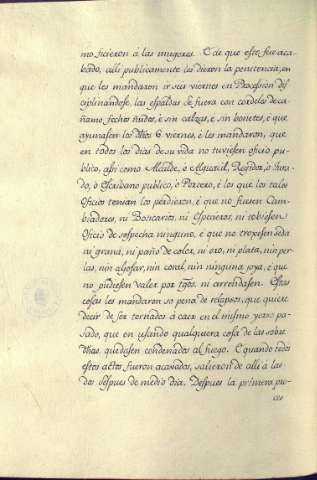 mo ficieron á las mugeres. E de que esto fue aca-
bado, alli publicamente les dieron la penitencia, en
que les mandaron ir seis viernes en Procesion dis-
ciplinandose, las espaldas de fuera con cordeles de ca-
ñamo, fechos ñudos, é sin calzas, é sin bonetes, é que
ayunasen los dhos 6 viernes, é les mandaron, que
en todos los dias de su vida no tuviesen oficio pu-
blico, asi como Alcalde, ó Alguacil, Regidor, ó Jura-
do, ó Escribano publico, ó Portero, é los que los tales
Oficios tenian los perdieron, é que no fuesen Cam-
biadores, ni Boticarios, ni Especieros, ni tobiesen
Oficio de sospecha ninguno, é que no troxesen seda
ni grana, ni paño de color, ni oro, ni plata, nin per-
las, nin aljofar, nin coral, nin ninguna joya, é que
no pudiesen valer por tgos, ni arrendasen. Estas
cosas les mandaron so pena de relapsos, que quiere
decir de ser tornados á caer en el mismo yerro pa-
sado, que en usando qualquiera cosa de las sobre
dhas quedasen condenados al fuego. E quando todos
estos actos fueron acavados, salieron de alli á las
dos despues de medio dia. Despues la primera pro-
ces